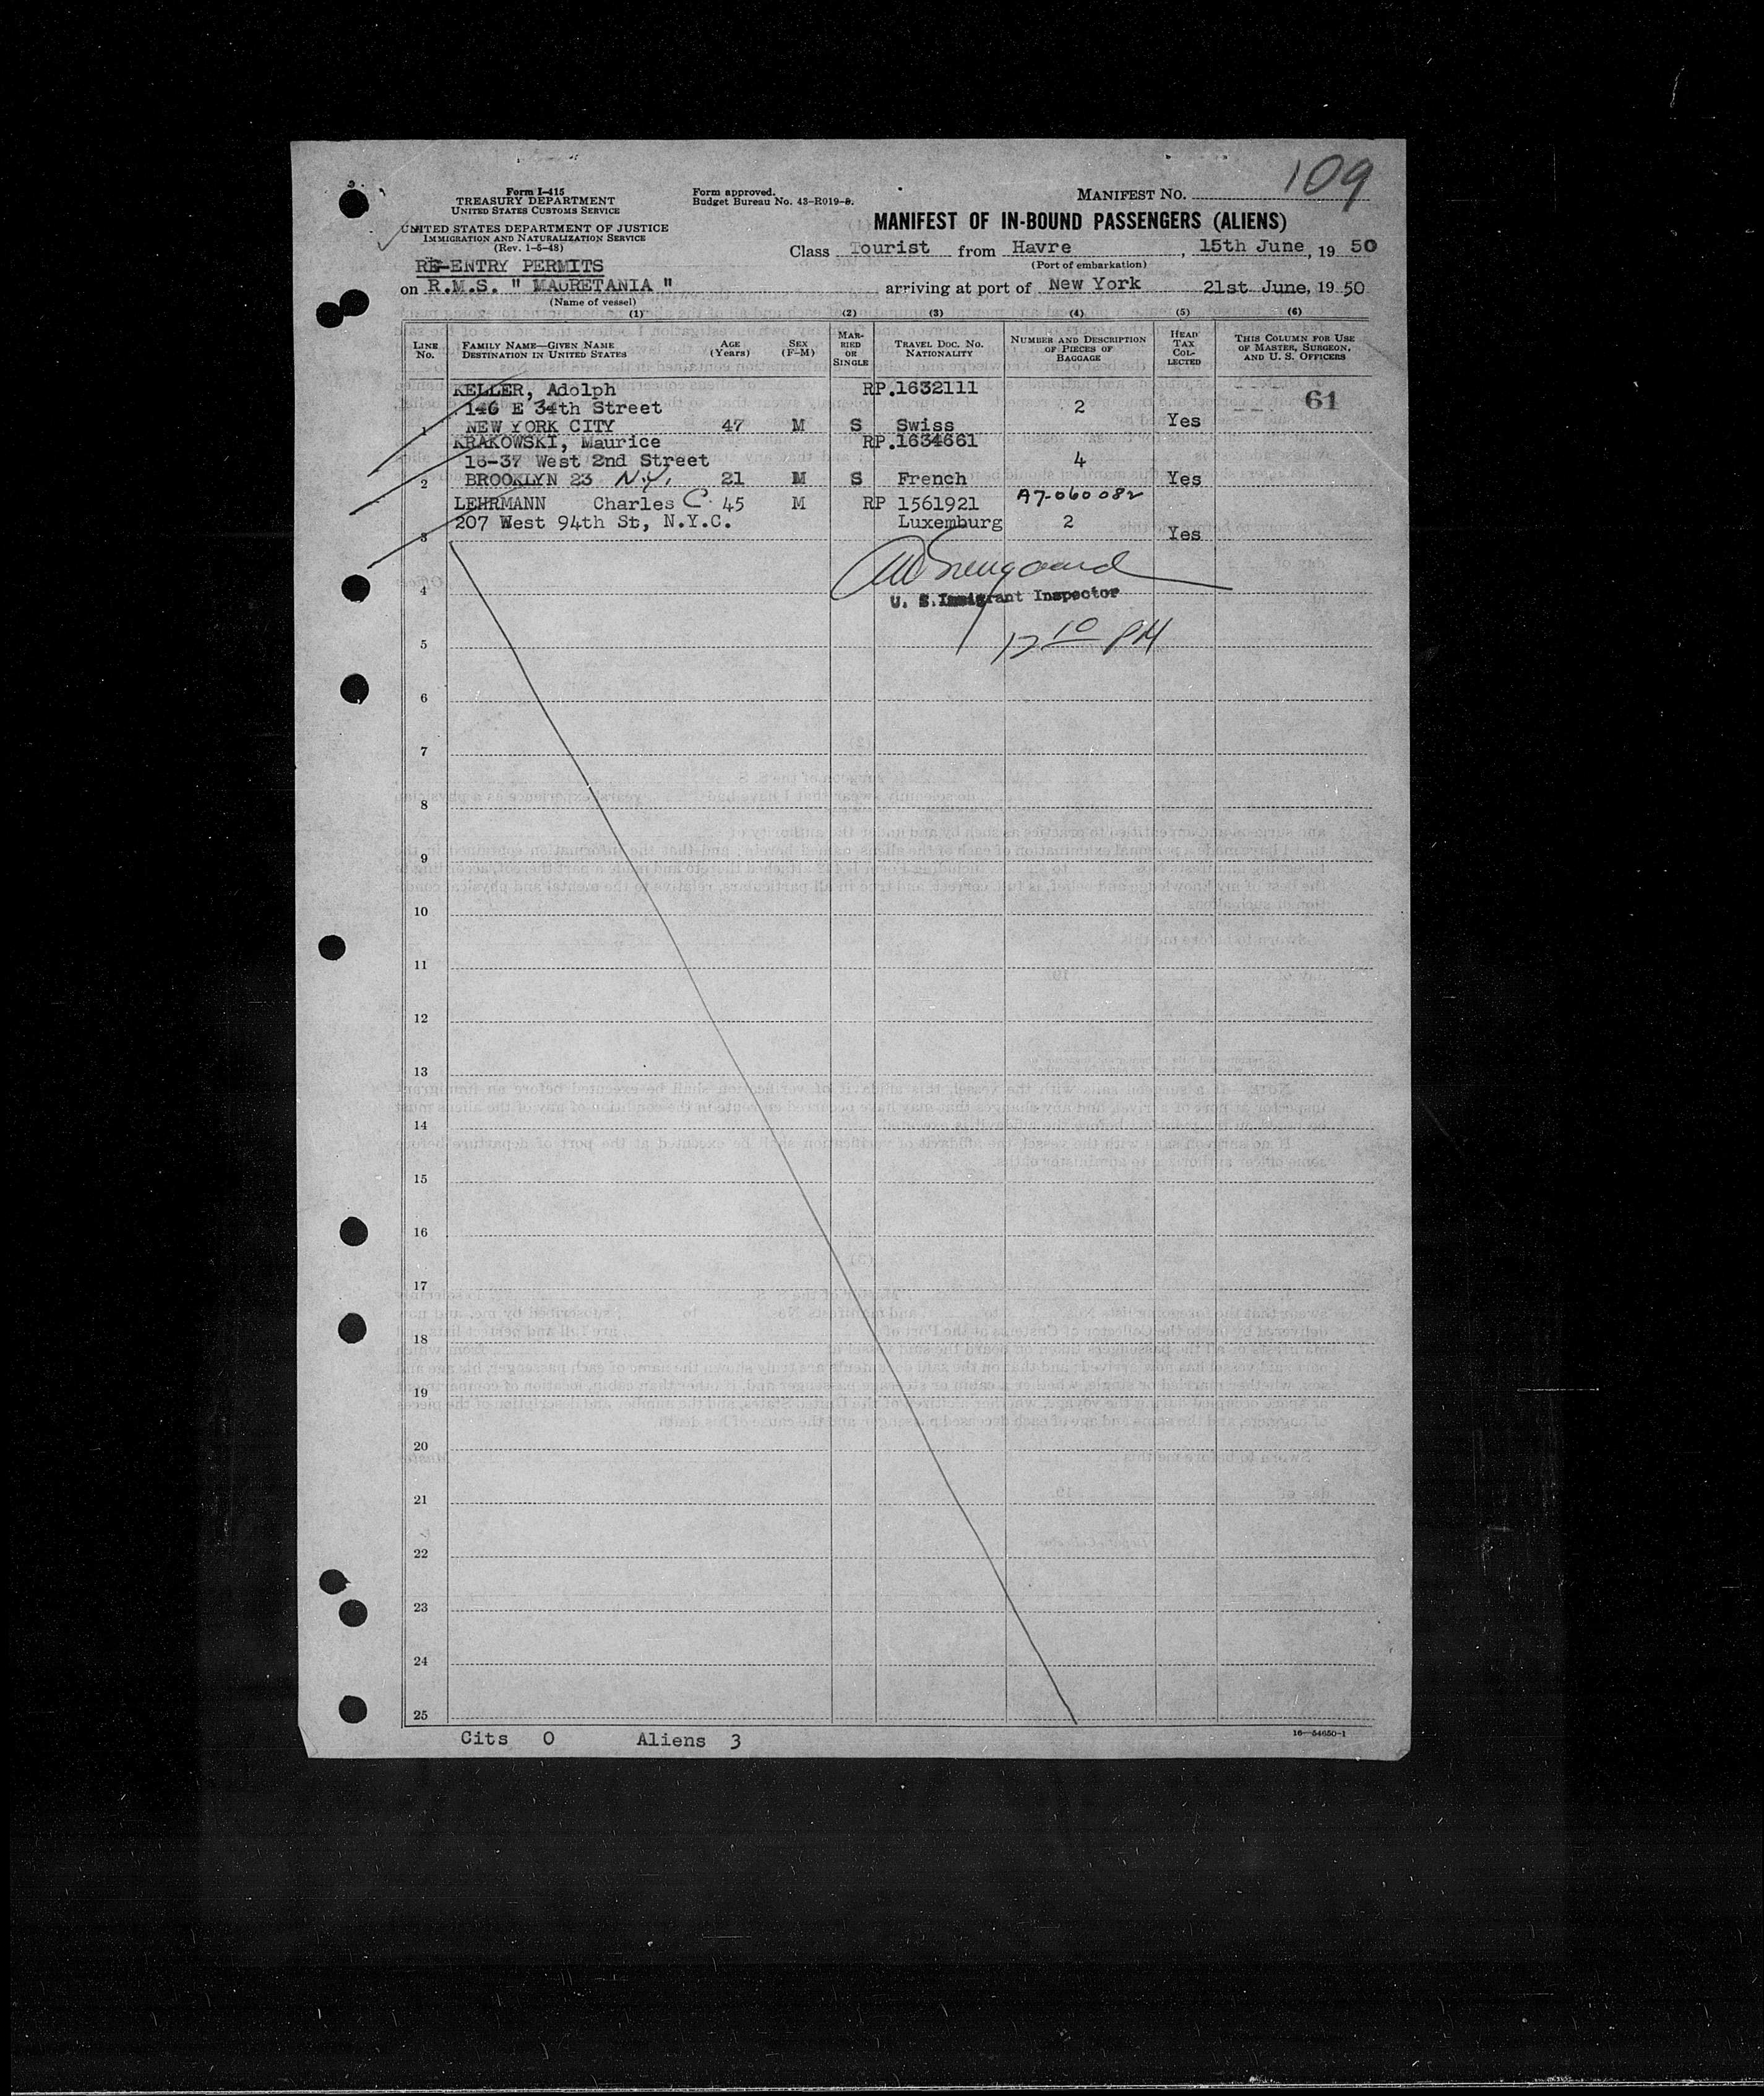 109
Form I-415
TREASURY DEPARTMENT
UNITED STATES CUSTOMS SERVICE
UNITED STATES DEPARTMENT OF JUSTICE
IMMIGRATION AND NATURALIZATION SERVICE
(Rev. 1-5-48)
Form approved.
Budget Bureau No. 43-R019-
MANIFEST NO.
MANIFEST OF IN-BOUND PASSENGERS (ALIENS)
Class Tourist from Havre, 15th June, 19 50
(Port of embarkation)
RE-ENTRY PERMITS
on R.M.S. " MAURETANIA " arriving at port of New York 21st June, 19 50
(Name of vessel)
(1) (2) (3) (4) (5) (6)
LINE No. FAMILY NAME—GIVEN NAME DESTINATION IN UNITED STATES AGE (Years) SEX (F-M) MARRIED OR SINGLE TRAVEL DOC. NO. NATIONALITY NUMBER AND DESCRIPTION OF PIECES OF BAGGAGE HEAD TAX COLLECTED THIS COLUMN FOR USE OF MASTER, SURGEON, AND U. S. OFFICERS
KELLER, Adolph RP.1632111
146 E 34th Street 2 61
1 NEW YORK CITY 47 M S Swiss Yes
KRAKOWSKI, Maurice RP.1634661
16-37 West 2nd Street 4
2 BROOKLYN 23 N.Y. 21 M S French Yes
LEHRMANN Charles C. 45 M RP 1561921 A7-060082
207 West 94th St, N.Y.C. Luxemburg 2
3 Yes
4
U. S. Immigrant Inspector
12 10 PM
5
6
7
8
9
10
11
12
13
14
15
16
17
18
19
20
21
22
23
24
25
Cits 0 Aliens 3
16—54650-1